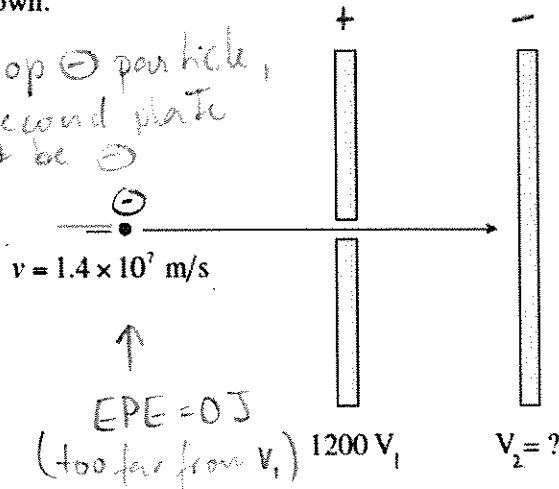 own.
+ −
op ⊖ particle,
second plate
t be ⊖
⊖
v = 1.4 × 10⁷ m/s
EPE = 0 J
(too far from V₁)
1200 V₁
V₂ = ?